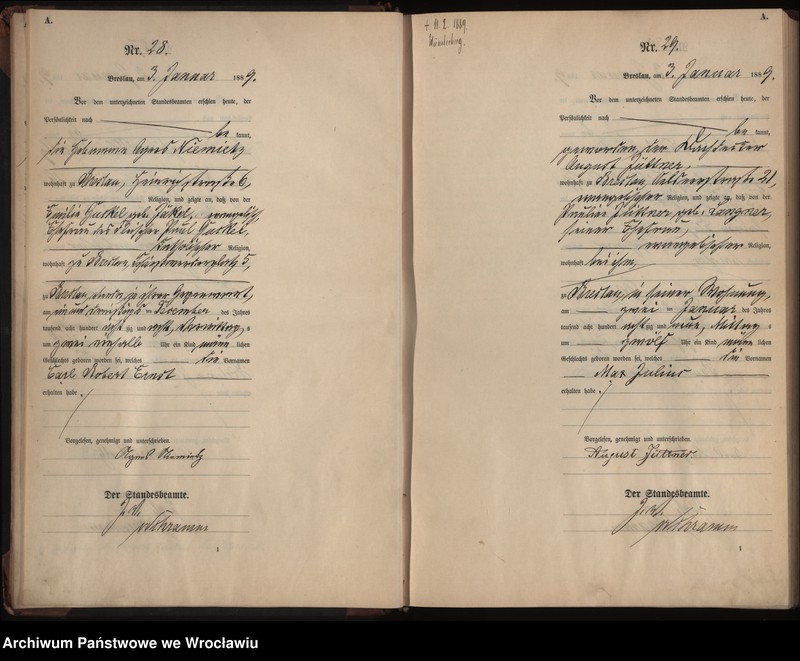 A.
Nr. 28.
Breslau, am 3. Januar 1889.
Vor dem unterzeichneten Standesbeamten erschien heute, der
Persönlichkeit nach be kannt,
die Hebamme Agnes Niemietz
wohnhaft zu Breslau, Heinrichstraße 6,
Religion, und zeigte an, daß von der
Emilie geb. evangelisch
Ehefrau des Paul
katholischer Religion,
wohnhaft zu Breslau, 5,
zu Breslau, in ihrer Gegenwart,
am Dezember des Jahres
tausend acht hundert acht zig und acht,
um zwei einhalb Uhr ein Kind männ lichen
Geschlechts geboren worden sei, welches die Vornamen
Carl Robert Ernst
erhalten habe.
Vorgelesen, genehmigt und unterschrieben.
Agnes Niemietz
Der Standesbeamte.
1
A.
+ 11 2. 1889
Münsterberg.
Nr. 29.
Breslau, am 3. Januar 1889.
Vor dem unterzeichneten Standesbeamten erschien heute, der
Persönlichkeit nach be kannt,
geworden, der
August Jüttner,
wohnhaft zu Breslau, 21,
evangelischer Religion, und zeigte an, daß von der
Jüttner geb. Langner,
seiner Ehefrau,
evangelischer Religion,
wohnhaft bei ihm,
zu Breslau, in seiner Wohnung,
am zwei ten Januar des Jahres
tausend acht hundert acht zig und neun, Mittag s
um zwölf Uhr ein Kind männ lichen
Geschlechts geboren worden sei, welches die Vornamen
Max Julius
erhalten habe.
Vorgelesen, genehmigt und unterschrieben.
August Jüttner
Der Standesbeamte.
1
Archiwum Państwowe we Wrocławiu